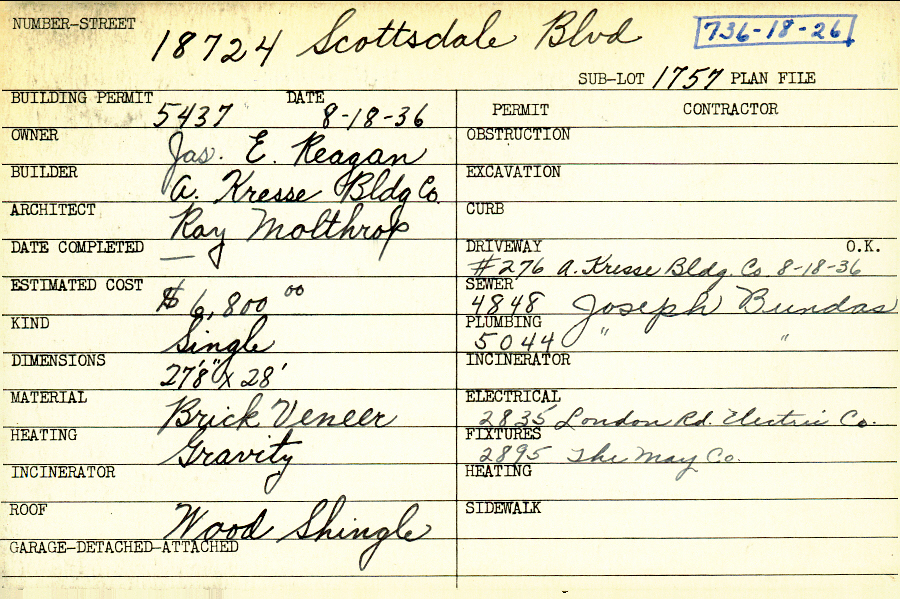 NUMBER-STREET 18724 Scottsdale Blvd 736-18-26
SUB-LOT 1757 PLAN FILE
BUILDING PERMIT 5437 DATE 8-18-36
OWNER Jas. E. Reagan
BUILDER A. Kresse Bldg Co.
ARCHITECT Ray Molthrop
DATE COMPLETED —
ESTIMATED COST $ 6,800 00
KIND Single
DIMENSIONS 27'8" X 28'
MATERIAL Brick Veneer
HEATING Gravity
INCINERATOR
ROOF Wood Shingle
GARAGE-DETACHED-ATTACHED
PERMIT CONTRACTOR
OBSTRUCTION
EXCAVATION
CURB
DRIVEWAY O.K.
#276 A. Kresse Bldg. Co. 8-18-36
SEWER
4848 Joseph Bundas
PLUMBING
5044 " "
INCINERATOR
ELECTRICAL
2835 London Rd. Electric Co.
FIXTURES
2895 The May Co.
HEATING
SIDEWALK